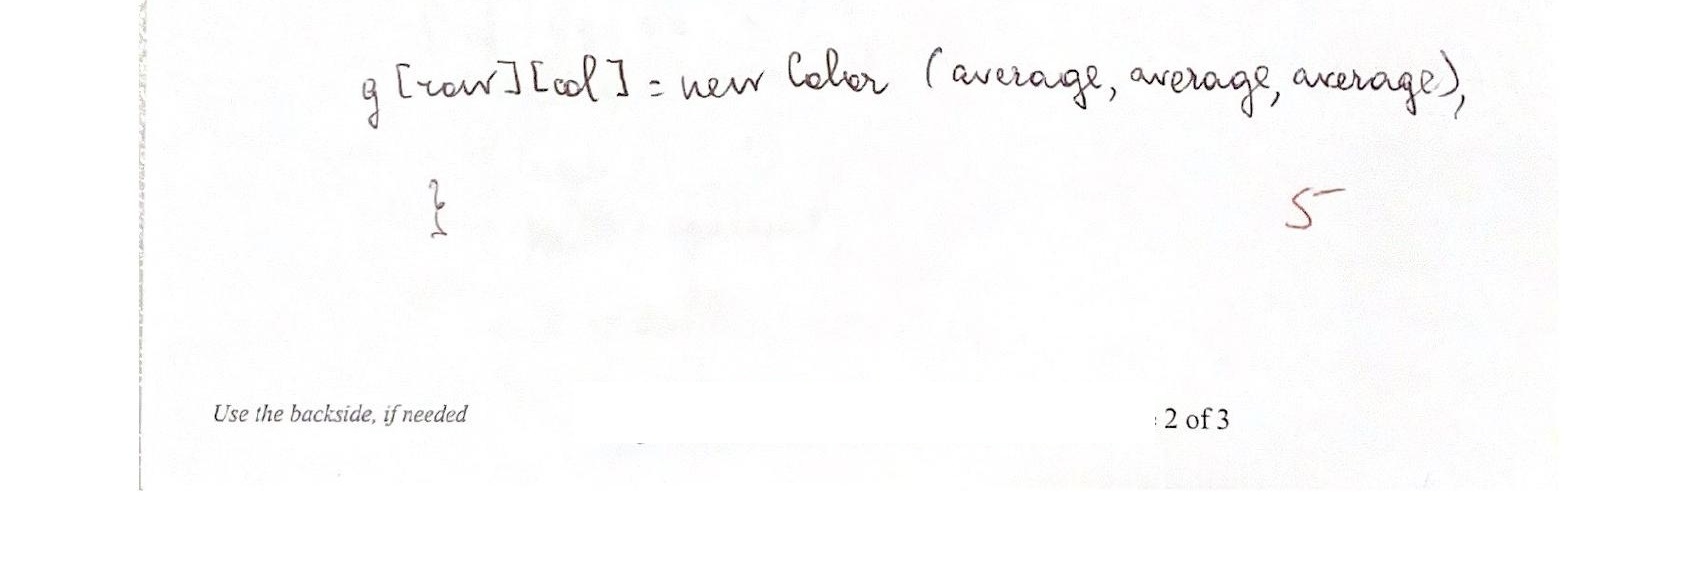 g [row][col] = new Color (average, average, average);
}
5
Use the backside, if needed
: 2 of 3